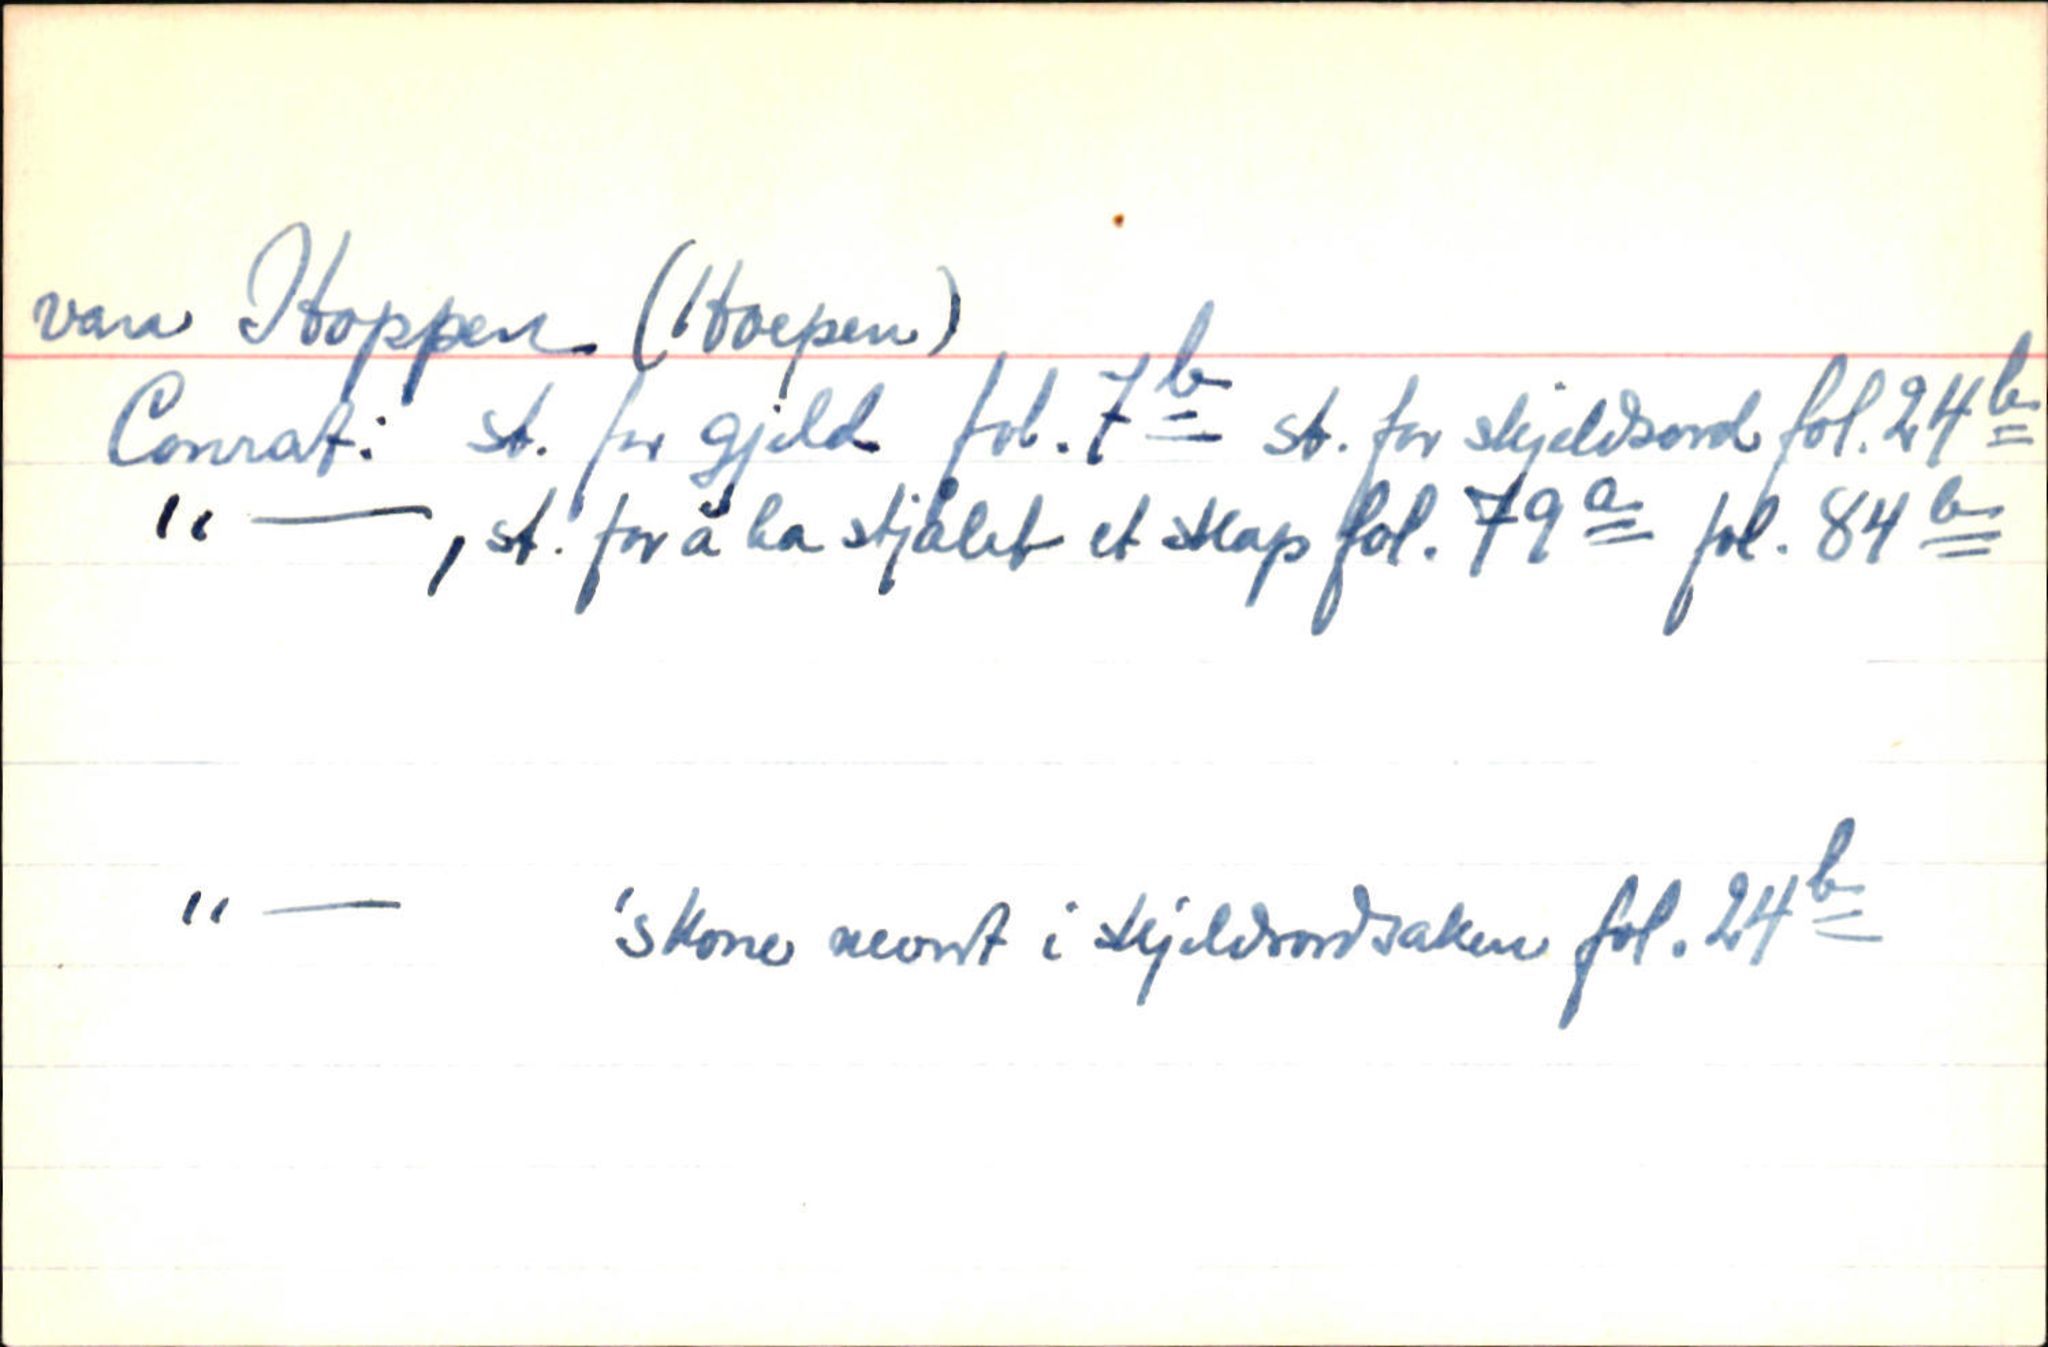 van Hoppen (Hoepen)
Conrat: st. for gjeld fol. 7b st. for skjeldsord fol. 24b
"—, st. for å ha stjålet et skap fol. 79a fol. 84b
"— 's kone nevnt i skjeldsordsaken fol. 24b